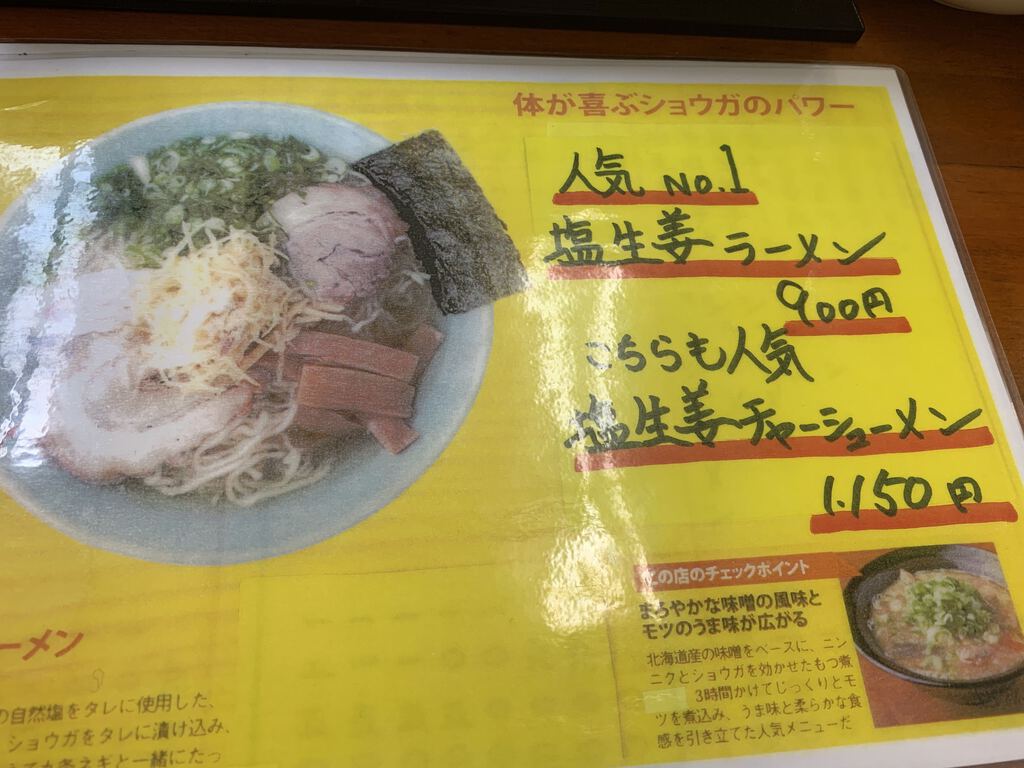 体が喜ぶショウガのパワー
人気 No.1
塩生姜ラーメン
900円
こちらも人気
塩生姜チャーシューメン
1.150円
この店のチェックポイント
まろやかな味噌の風味と
モツのうま味が広がる
北海道産の味噌をベースに、ニン
ニクとショウガを効かせたもつ煮
3時間かけてじっくりとモ
ツを煮込み、うま味と柔らかな食
感を引き立てた人気メニューだ
ーメン
の自然塩をタレに使用した、
ショウガをタレに漬け込み、
ネギと一緒にたっ